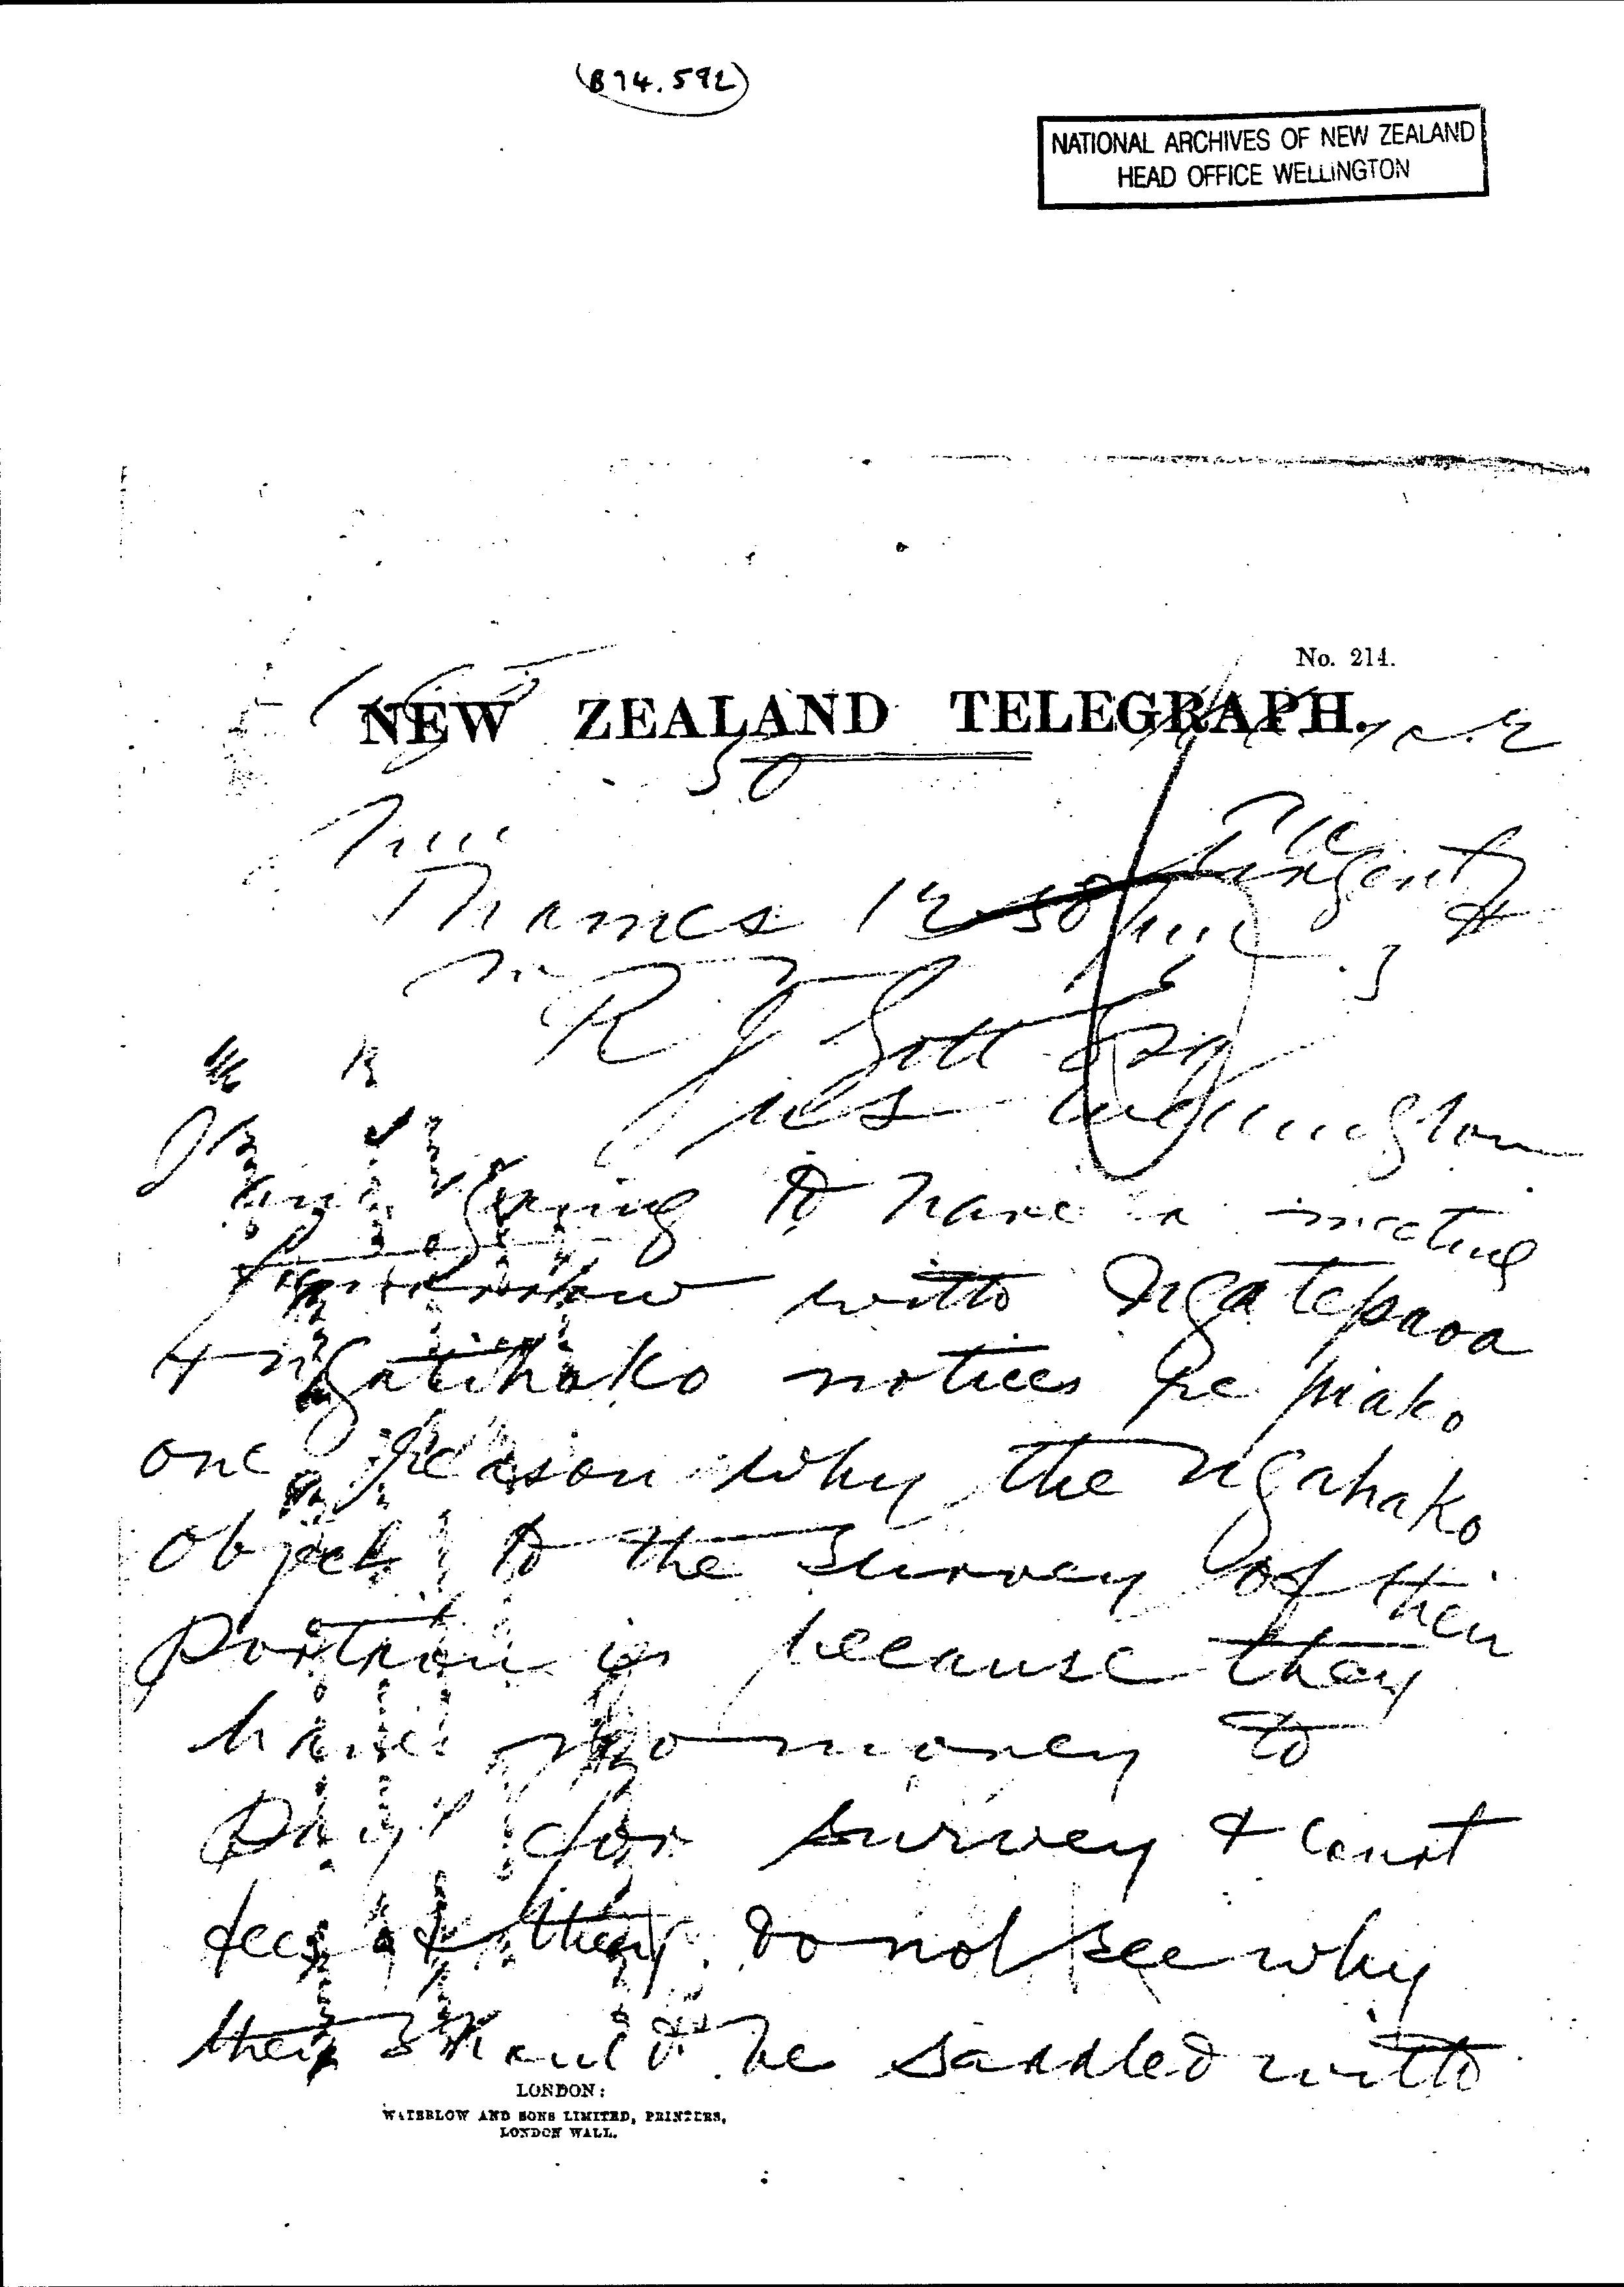 B74.592
NATIONAL ARCHIVES OF NEW ZEALAND
HEAD OFFICE WELLINGTON
No. 214.
NEW ZEALAND TELEGRAPH.
50
Thames 12 50 Urgent
R J Gill Esq
Wellington
I
am going to have a meeting
tomorrow with Ngatepaoa
& ngatihako notices re piako
one reason why the Ngahako
object to the survey of their
portion is because they
have no money to
pay for survey & Court
fees & they do not see why
they should be saddled with
LONDON:
WATERLOW AND SONS LIMITED, PRINTERS,
LONDON WALL.